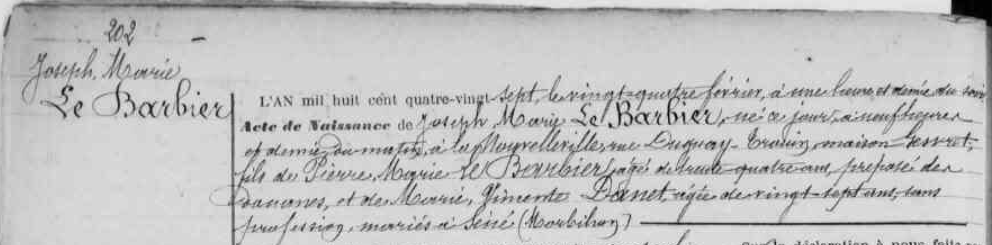 202
Joseph Marie
Le Barbier
L'AN mil huit cent quatre-vingt-sept, le vingt-quatre février, à une heure et demie du soir
Acte de Naissance de Joseph Marie Le Barbier, né ce jour, à neuf heures
et demie du matin, à la Nouvelleville, rue Duguay-Trouin, maison
fils de Pierre Marie Le Barbier, âgé de trente quatre ans, préposé des
douanes, et de Marie Vincente Danet, âgée de vingt-sept ans, sans
profession, mariés à Séné (Morbihan)
Sur la déclaration à nous faite